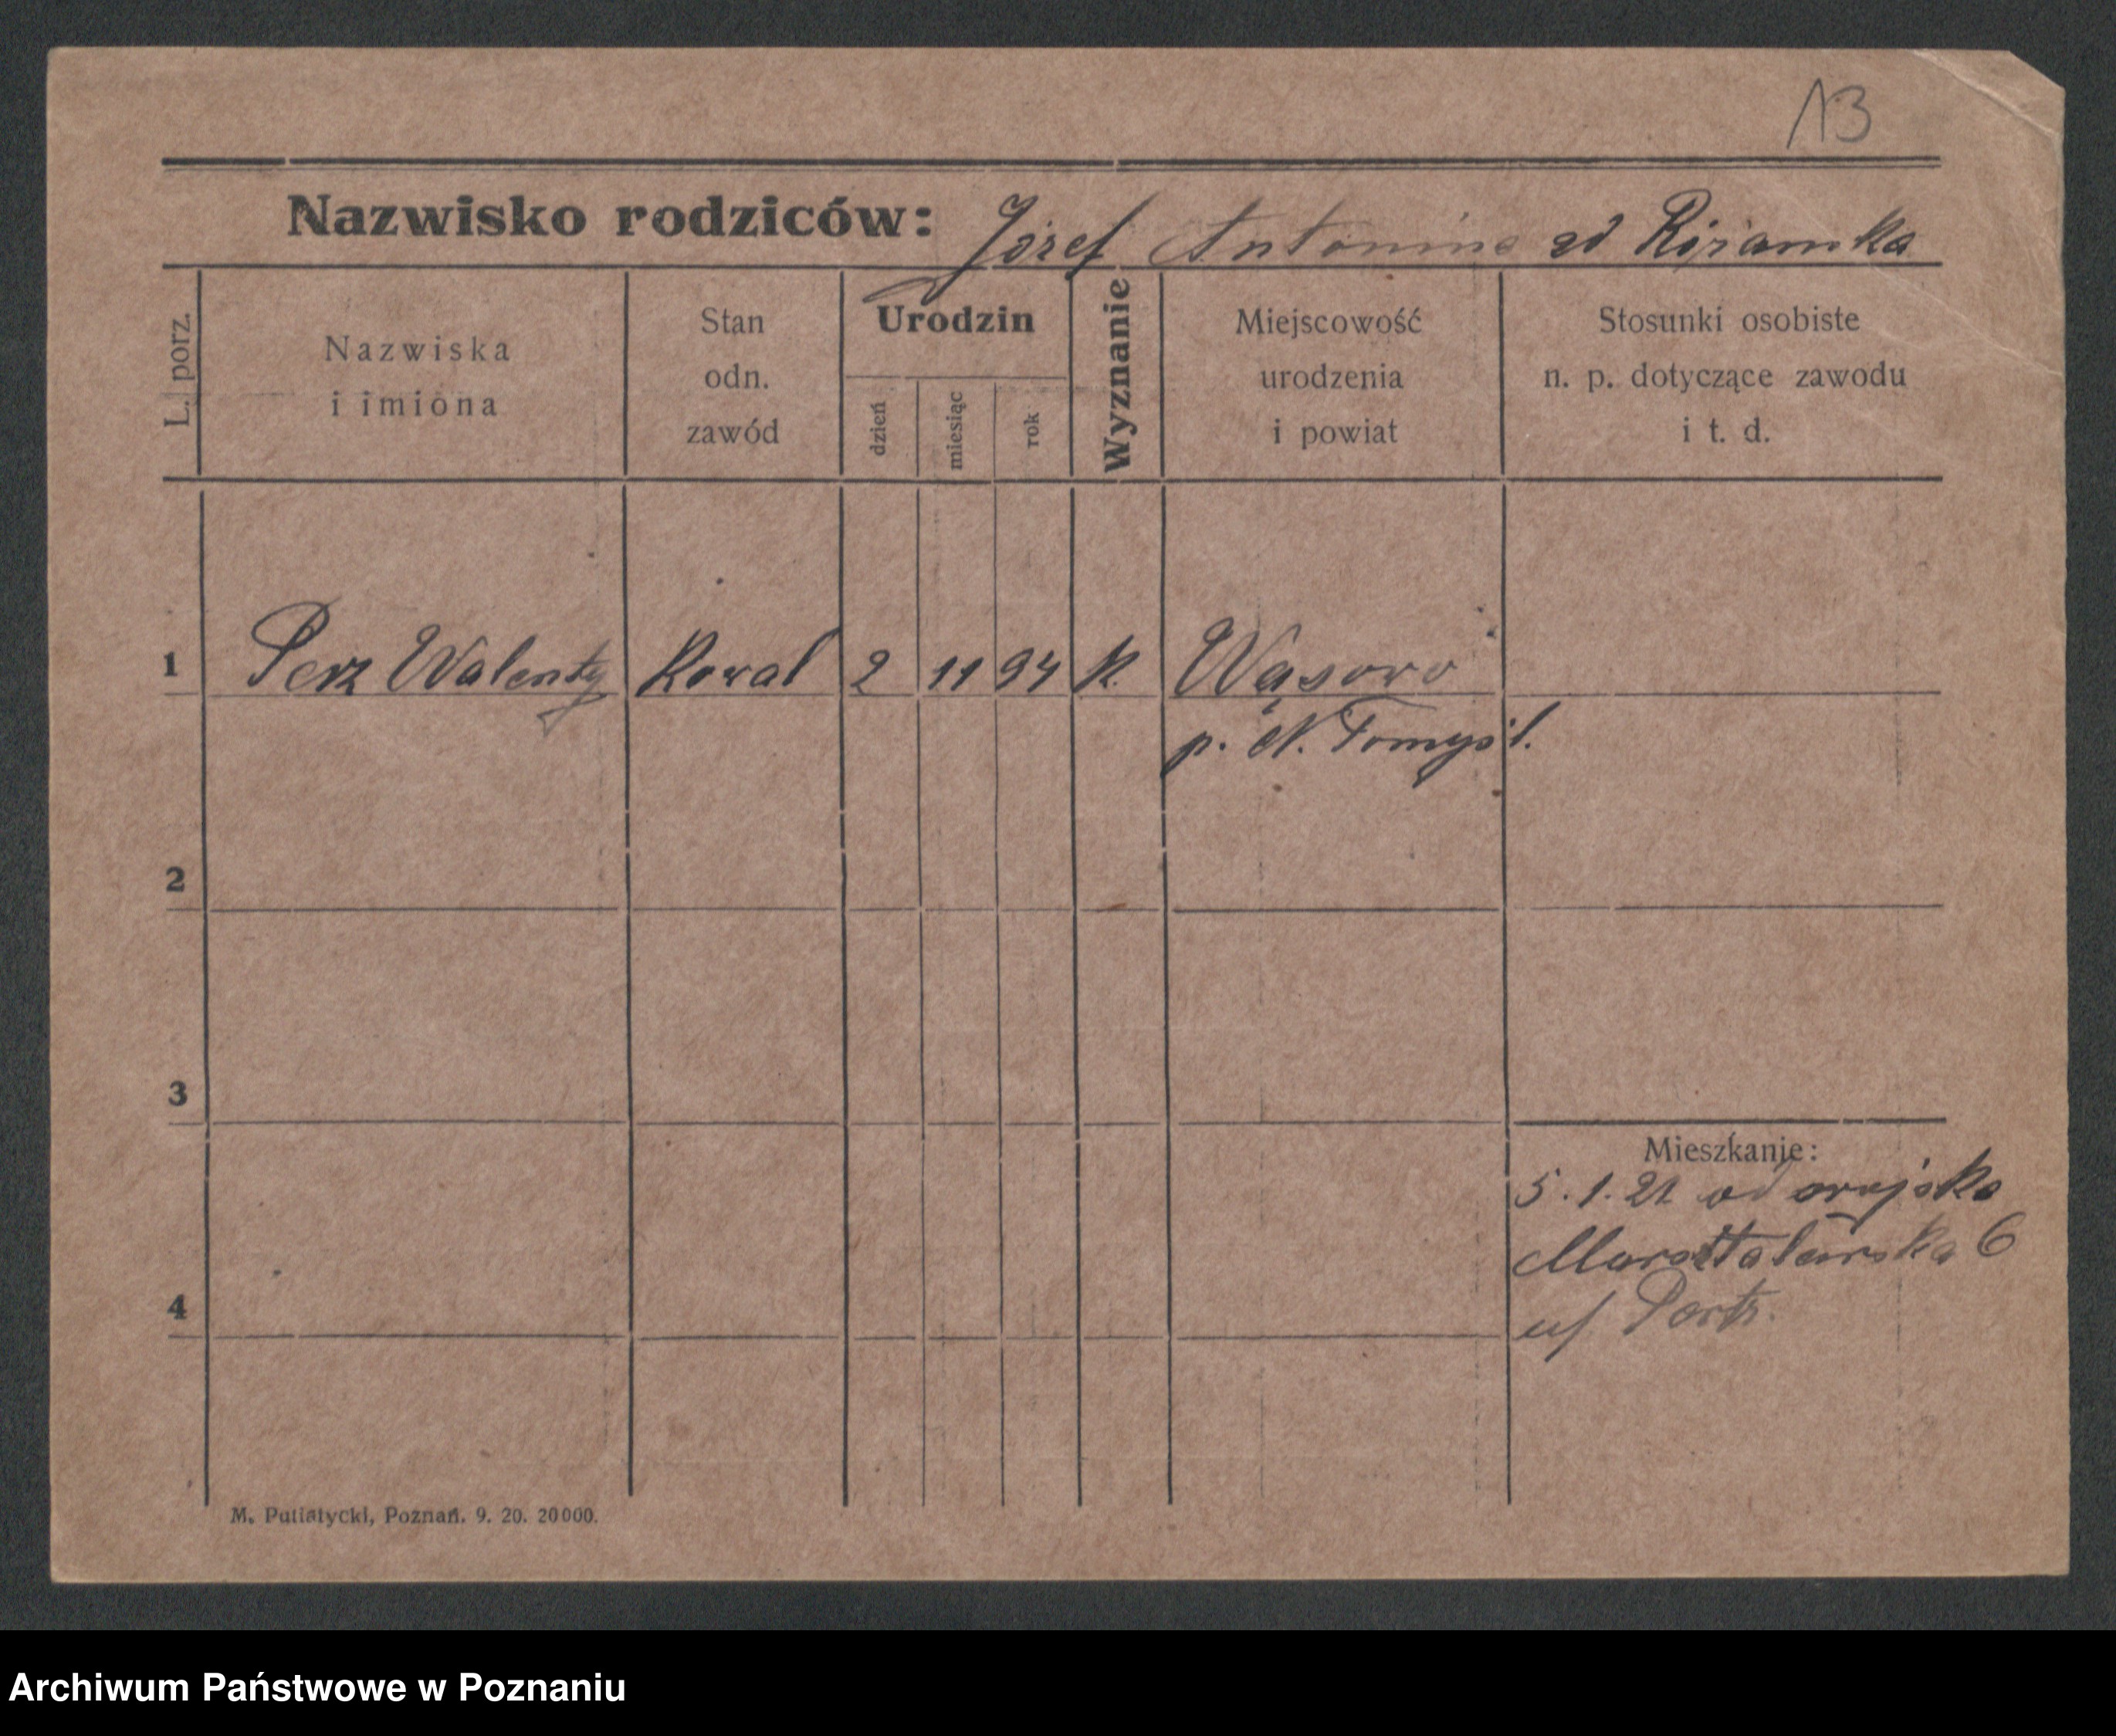 13
Nazwisko rodziców: Józef Antonina zd Różanska
L. porz.
Nazwiska
i imiona
Stan
odn.
zawód
Urodzin
dzień
miesiąc
rok
Wyznanie
Miejscowość
urodzenia
i powiat
Stosunki osobiste
n. p. dotyczące zawodu
i t. d.
1 Perz Walenty Kowal 2 11 94 k. Wąsowo
p. N. Tomyśl.
2
3
Mieszkanie:
5.1.21 od wojska
Marsztalarska 6
4
M. Putiatycki, Poznań. 9. 20. 20000.
Archiwum Państwowe w Poznaniu